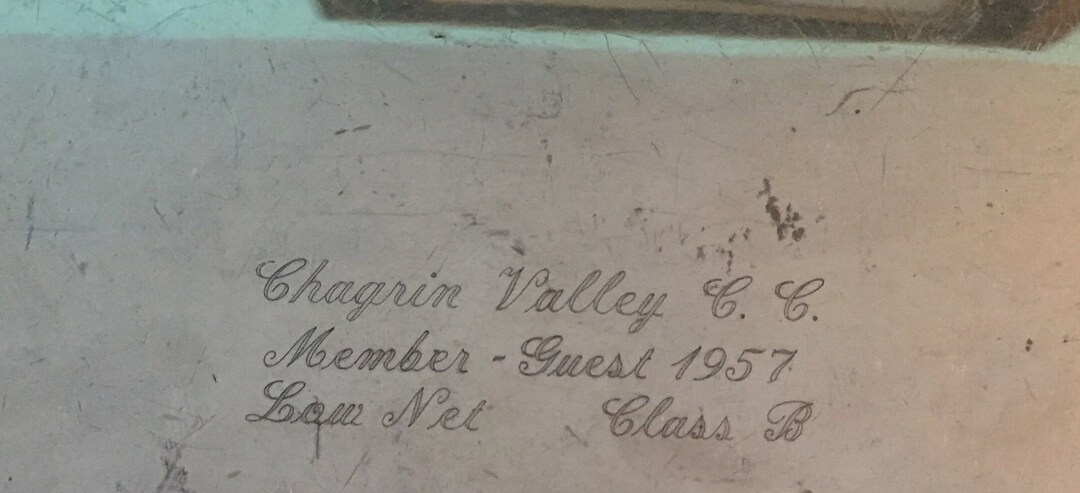 Chagrin Valley C. C.
Member - Guest 1957
Low Net Class B